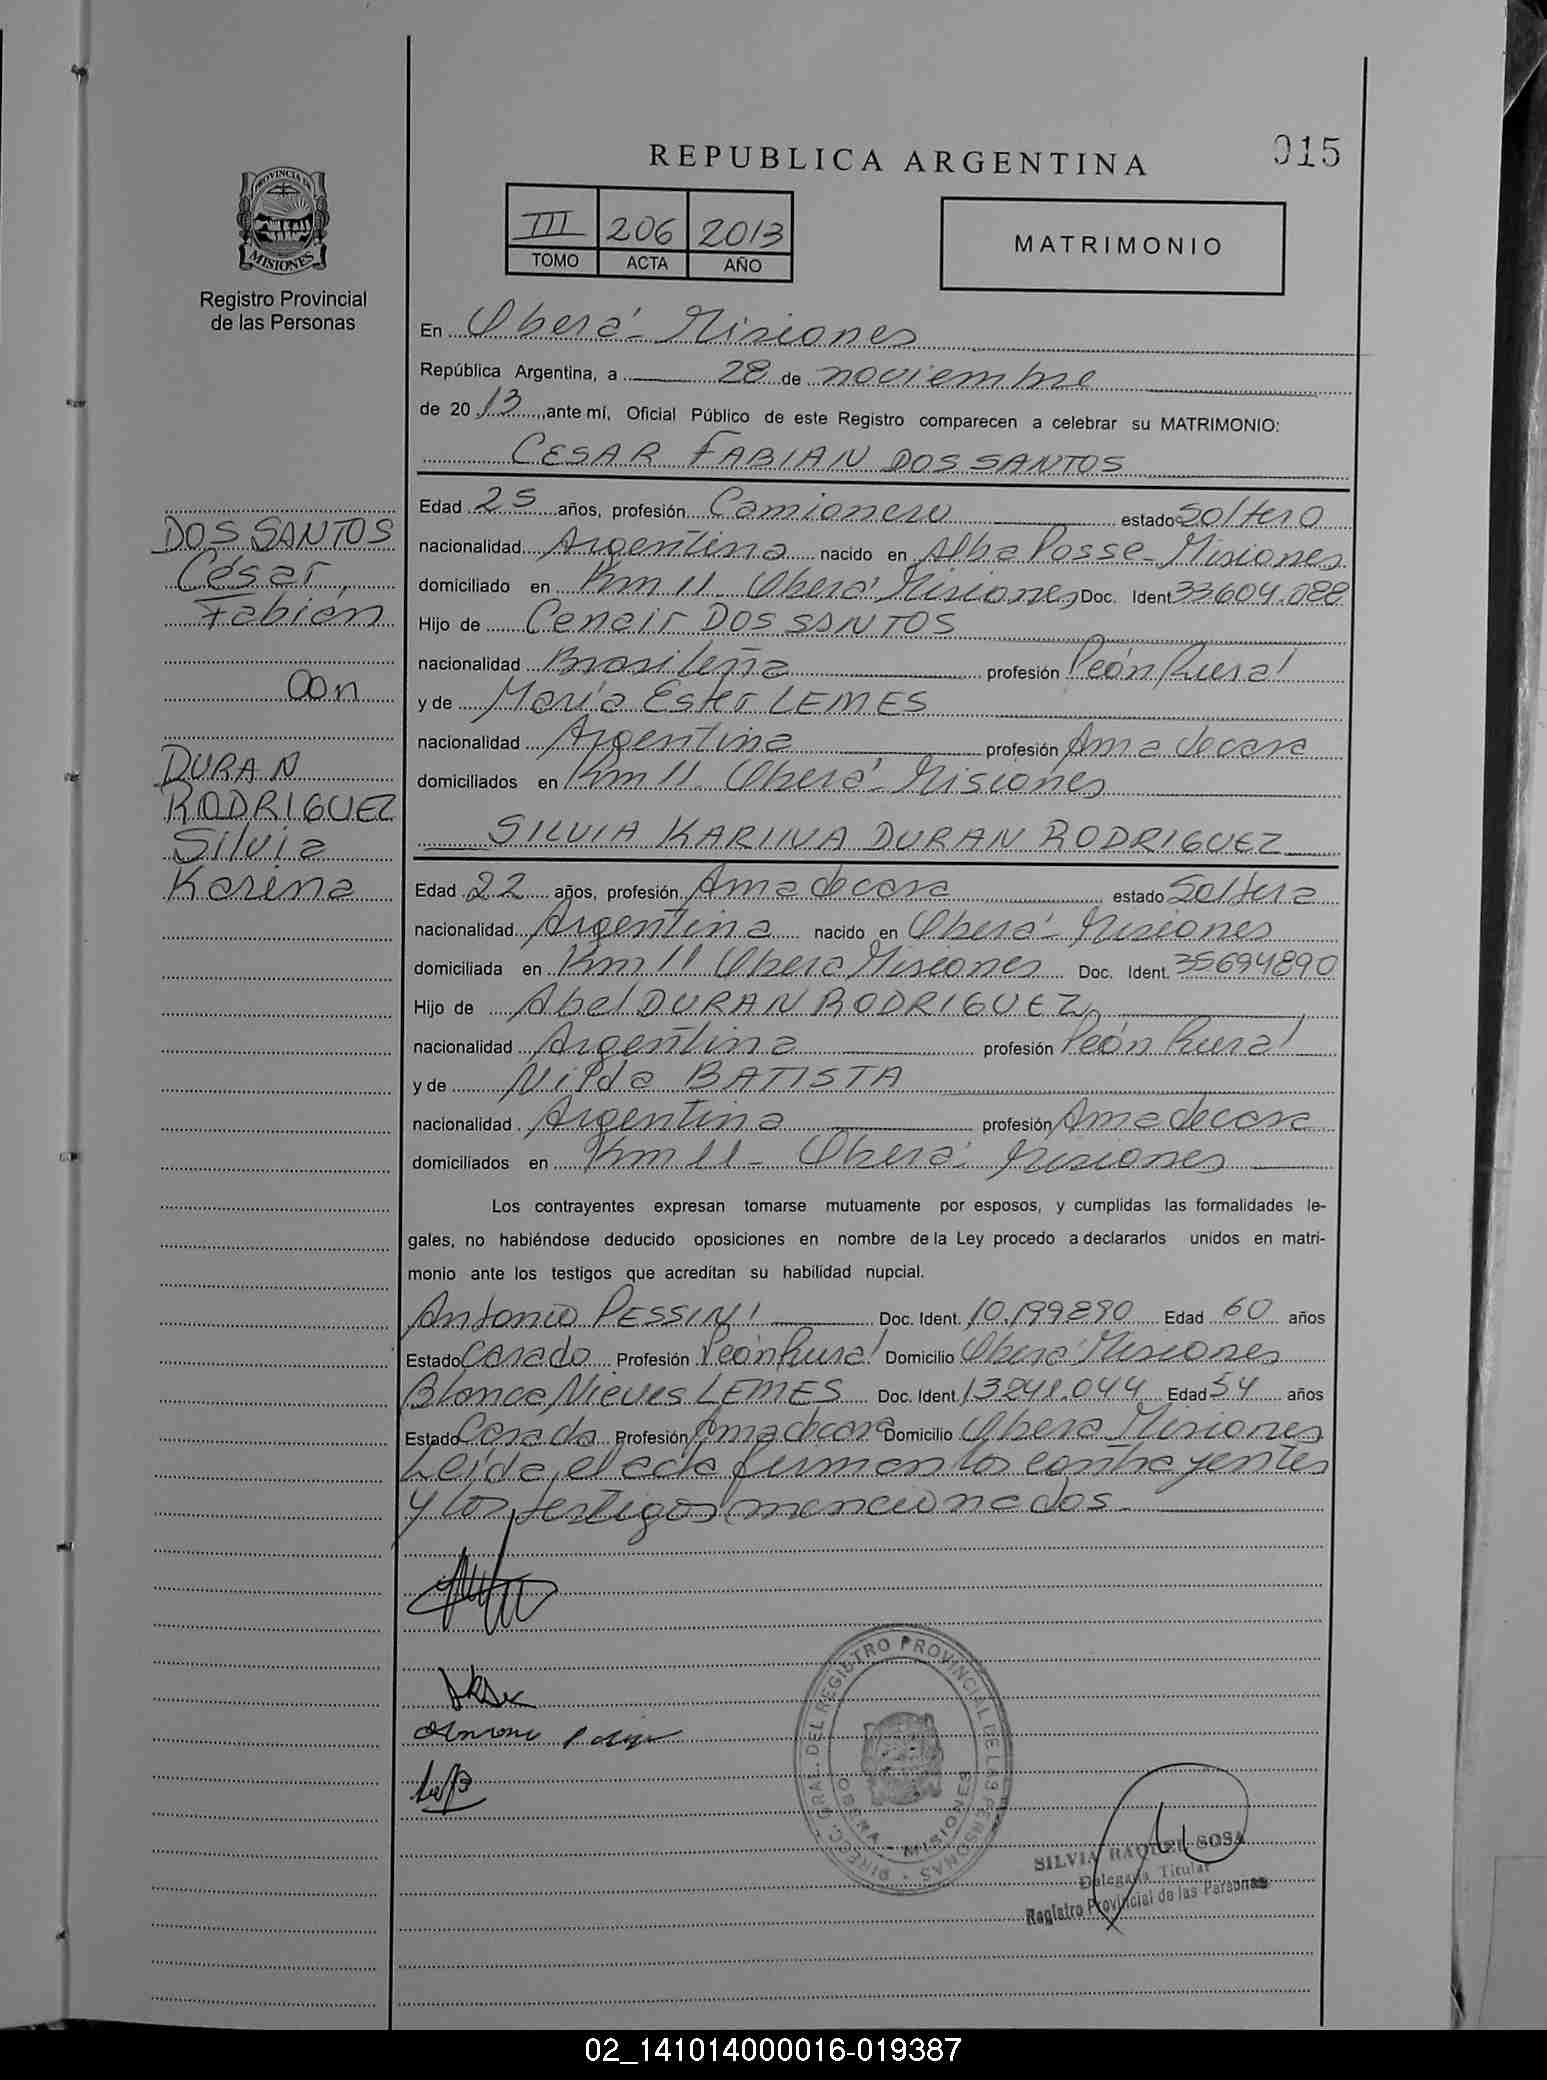 REPUBLICA ARGENTINA
015
PROVINCIA DE
MISIONES
Registro Provincial
de las Personas
III 206 2013
TOMO ACTA AÑO
MATRIMONIO
En Oberá - Misiones
República Argentina, a 28 de noviembre
de 2013, ante mí, Oficial Público de este Registro comparecen a celebrar su MATRIMONIO:
CESAR FABIAN DOS SANTOS
DOS SANTOS
César
Fabián
Con
DURAN
RODRIGUEZ
Silvia
Karina
Edad 25 años, profesión Camionero estado Soltero
nacionalidad Argentina nacido en Alba Posse - Misiones
domiciliado en Km 11 - Oberá Misiones Doc. Ident 33604.088
Hijo de Cenair DOS SANTOS
nacionalidad Brasileña profesión Peón Rural
y de María Ester LEMES
nacionalidad Argentina profesión Ama de casa
domiciliados en Km 11 - Oberá - Misiones
SILVIA KARINA DURAN RODRIGUEZ
Edad 22 años, profesión Ama de casa estado Soltera
nacionalidad Argentina nacido en Oberá - Misiones
domiciliada en Km 11 Oberá Misiones Doc. Ident. 35694890
Hijo de Abel DURAN RODRIGUEZ
nacionalidad Argentina profesión Peón Rural
y de Nilda BATISTA
nacionalidad Argentina profesión Ama de casa
domiciliados en Km 11 - Oberá - Misiones
Los contrayentes expresan tomarse mutuamente por esposos, y cumplidas las formalidades le-
gales, no habiéndose deducido oposiciones en nombre de la Ley procedo a declararlos unidos en matri-
monio ante los testigos que acreditan su habilidad nupcial.
Antonio PESSINI Doc. Ident. 10.199890 Edad 60 años
Estado Casado Profesión Peón Rural Domicilio Oberá Misiones
Blanca Nieves LEMES Doc. Ident 13241.044 Edad 54 años
Estado Casada Profesión Ama de casa Domicilio Oberá Misiones
Leída el acta firman los contrayentes
y los testigos mencionados
DIREC. GRAL. DEL REGISTRO PROVINCIAL DE LAS PERSONAS
OBERA - MISIONES
SILVIA RAQUEL SOSA
Delegada Titular
Registro Provincial de las Personas
02_141014000016-019387